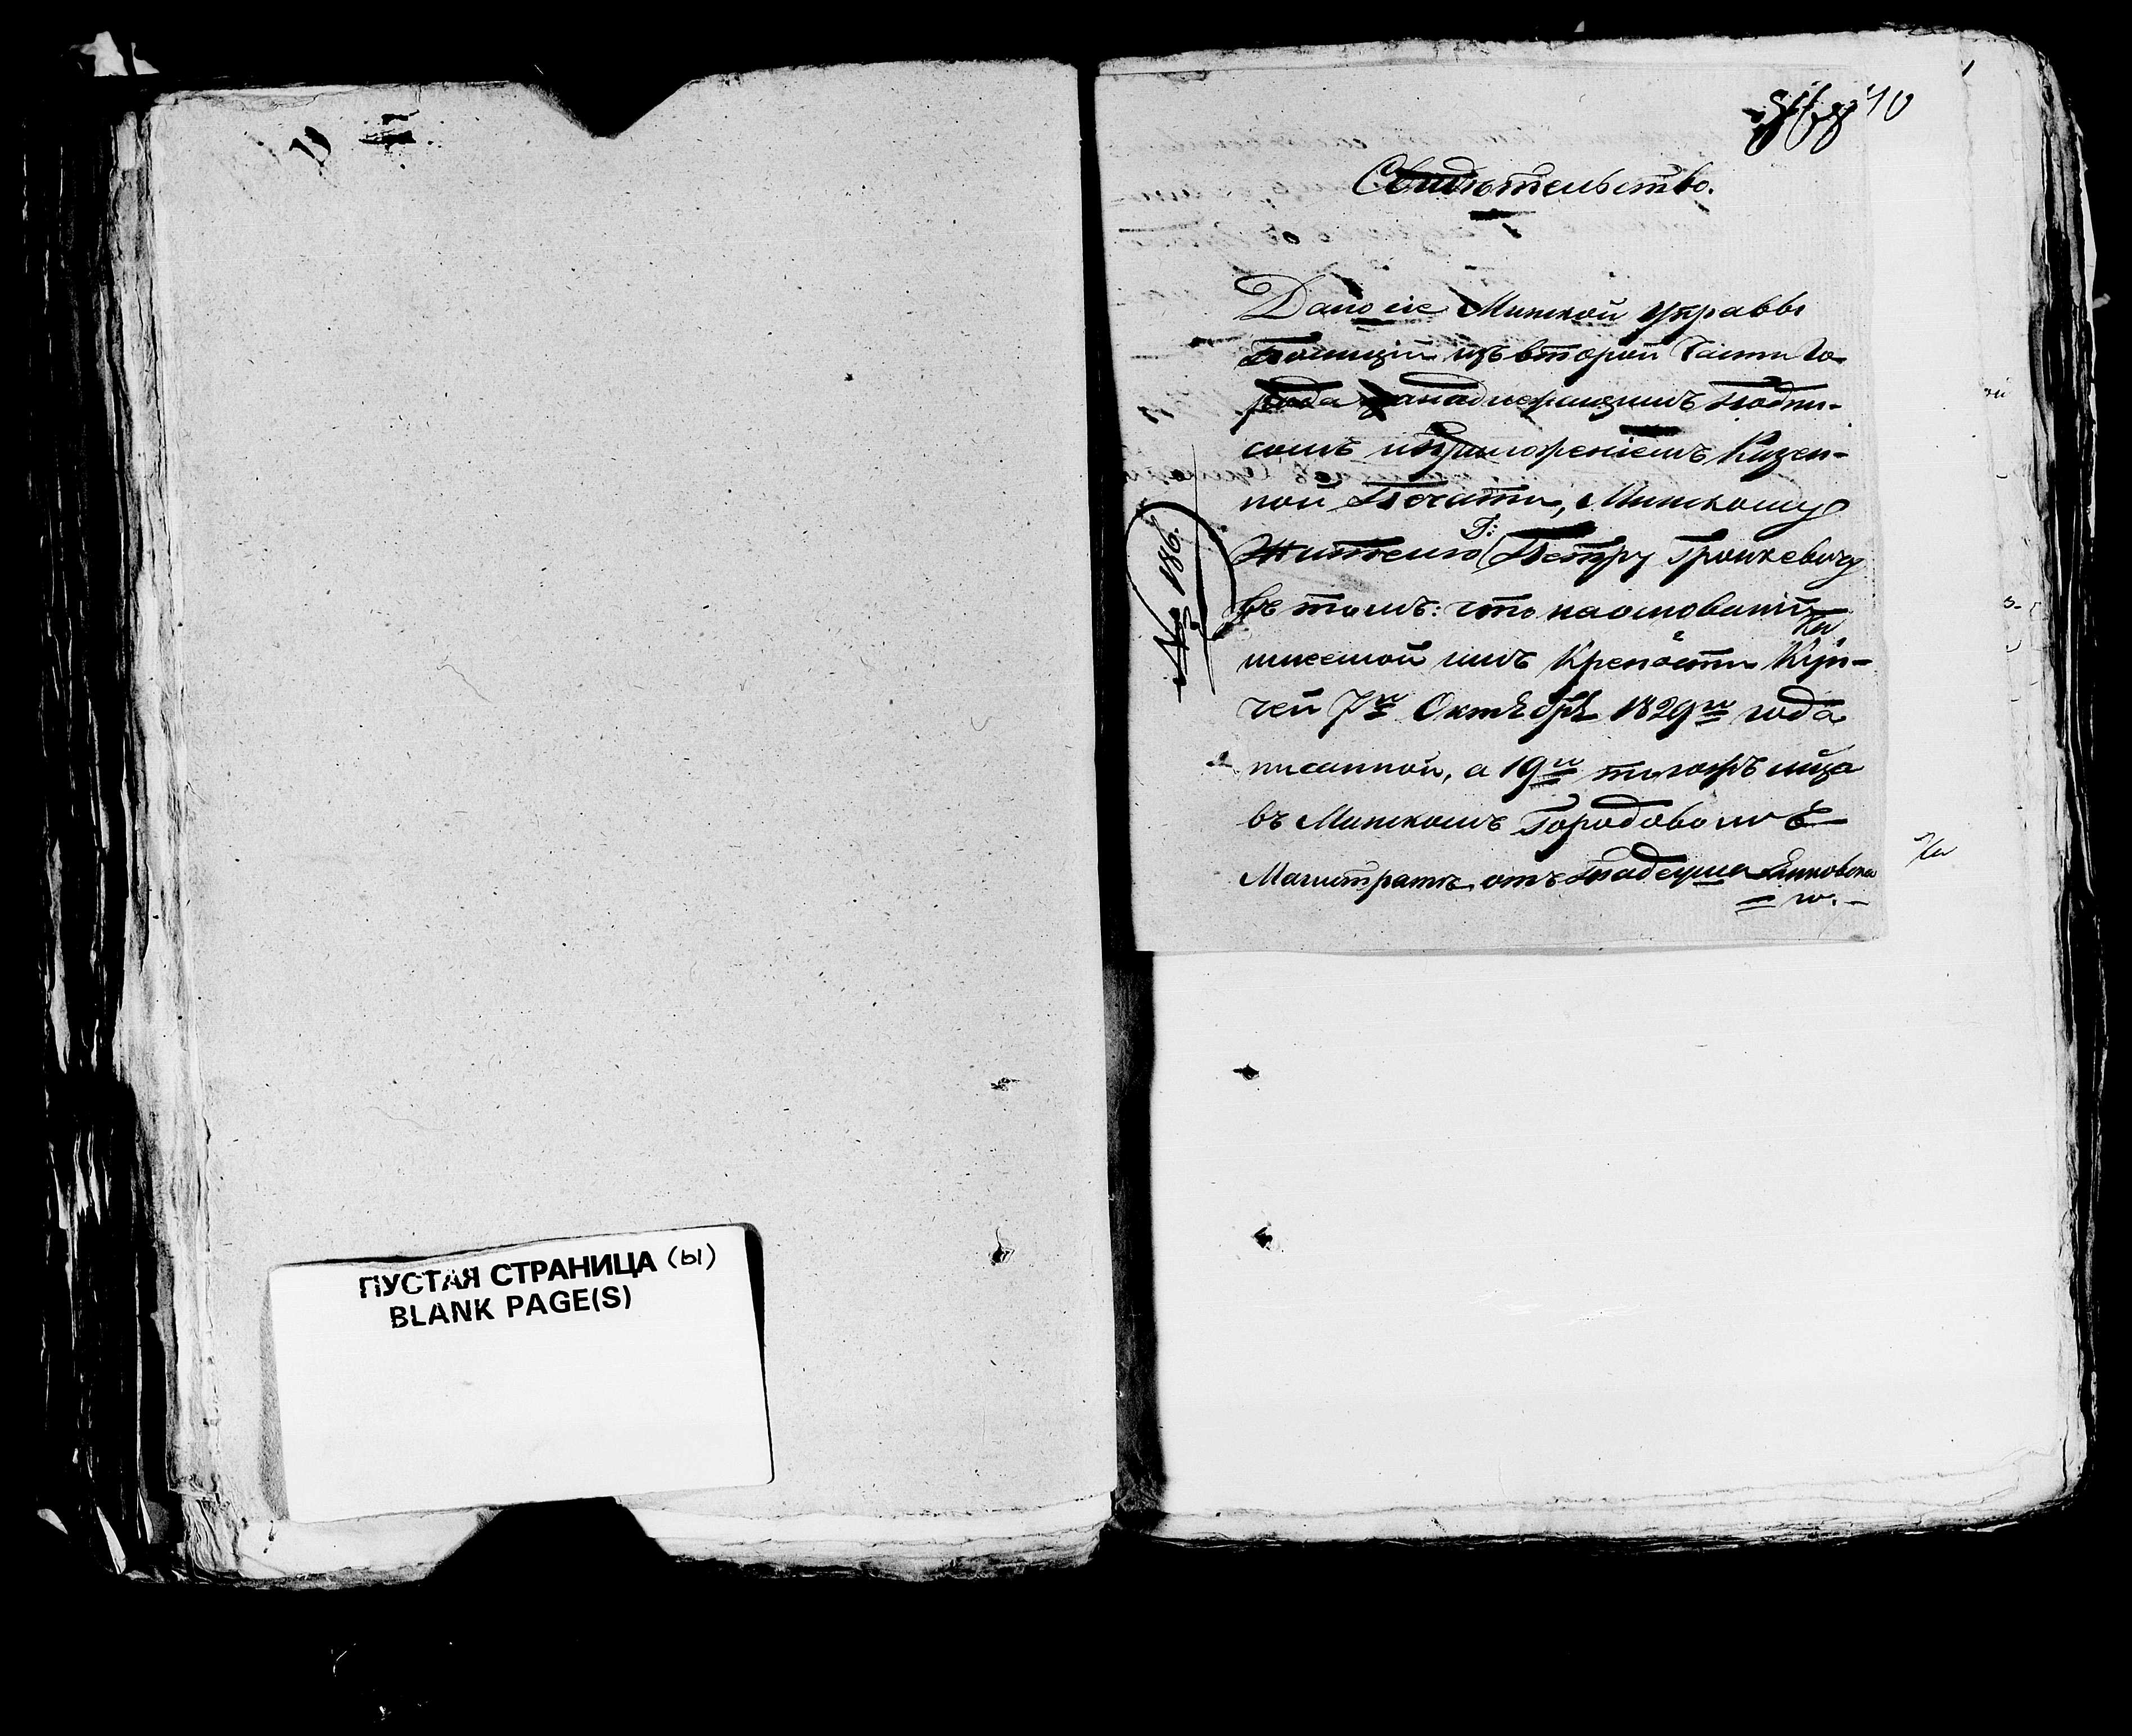 ПУСТАЯ СТРАНИЦА (ы)
BLANK PAGE(S)
10
Свидѣтельство.
Дано сіе Минской Управы
Полиціи изъ второй Части Го-
рода занадлежащимъ подпи-
сомъ иприложеніемъ Казен-
ной Печати, Минскому
Жителю Г: Петру Гронкевичу
въ томъ: что наоснованіи
имеемой имъ Крепости Куп-
чей 7го Октября 1829го года
писанной, а 19го тогожъ мца
въ Минскомъ Городовомъ
Магистратѣ отъ Тадеуша Янковска
го.
№ 186.